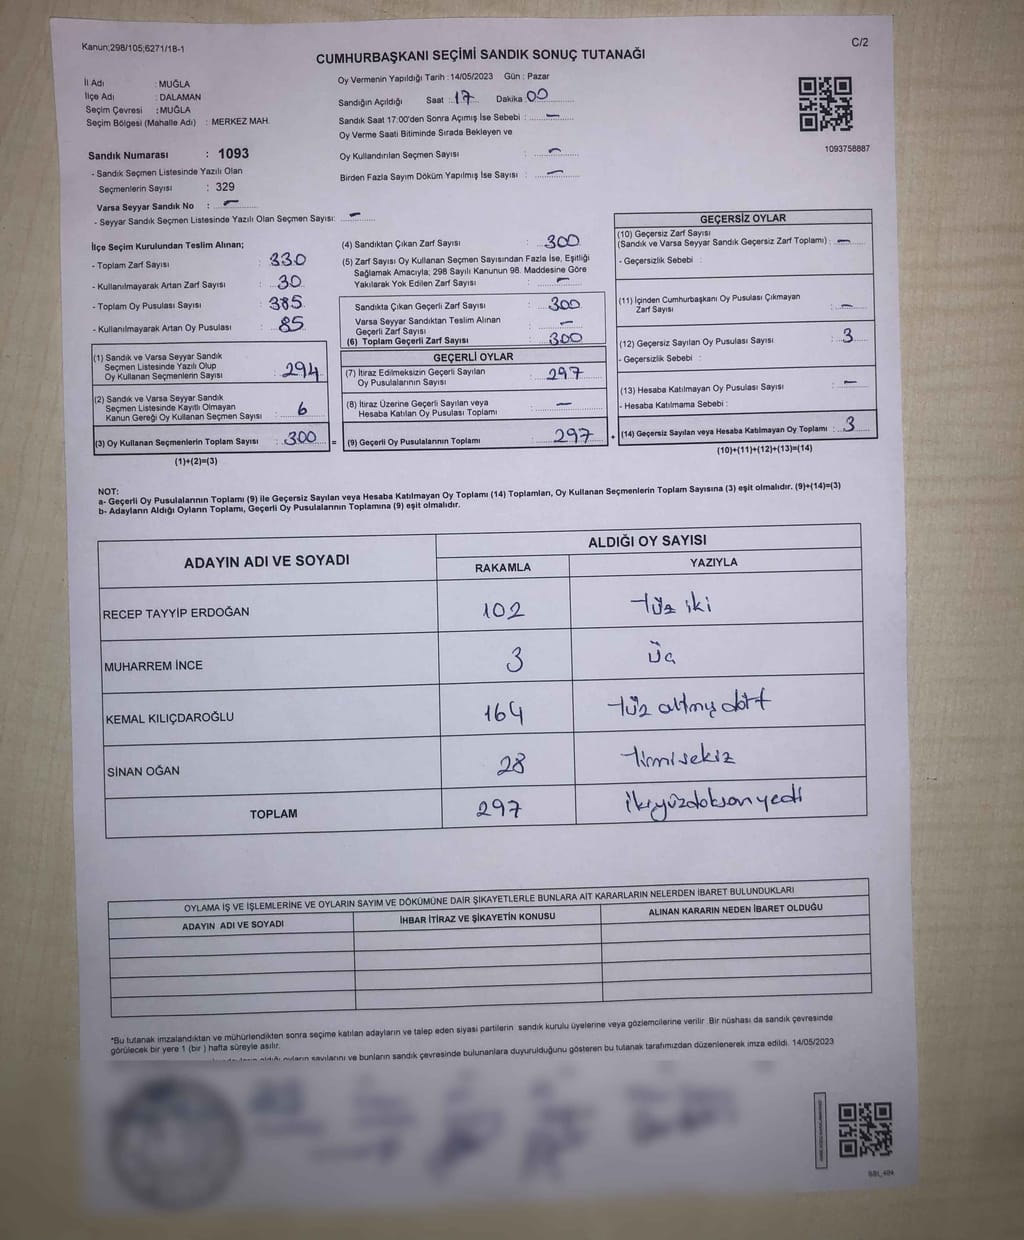 Kanun;298/105;6271/18-1
C/2
CUMHURBAŞKANI SEÇİMİ SANDIK SONUÇ TUTANAĞI
İl Adı : MUĞLA
İlçe Adı : DALAMAN
Seçim Çevresi : MUĞLA
Seçim Bölgesi (Mahalle Adı) : MERKEZ MAH.
Sandık Numarası : 1093
- Sandık Seçmen Listesinde Yazılı Olan
Seçmenlerin Sayısı : 329
Varsa Seyyar Sandık No : –
- Seyyar Sandık Seçmen Listesinde Yazılı Olan Seçmen Sayısı: –
Oy Vermenin Yapıldığı Tarih : 14/05/2023 Gün : Pazar
Sandığın Açıldığı Saat : 17 Dakika 00
Sandık Saat 17:00'den Sonra Açımış İse Sebebi : –
Oy Verme Saati Bitiminde Sırada Bekleyen ve
Oy Kullandırılan Seçmen Sayısı : –
Birden Fazla Sayım Döküm Yapılmış İse Sayısı : –
1093758887
İlçe Seçim Kurulundan Teslim Alınan;
- Toplam Zarf Sayısı : 330
- Kullanılmayarak Artan Zarf Sayısı : 30
- Toplam Oy Pusulası Sayısı : 385
- Kullanılmayarak Artan Oy Pusulası : 85
(1) Sandık ve Varsa Seyyar Sandık
Seçmen Listesinde Yazılı Olup
Oy Kullanan Seçmenlerin Sayısı : 294
(2) Sandık ve Varsa Seyyar Sandık
Seçmen Listesinde Kayıtlı Olmayan
Kanun Gereği Oy Kullanan Seçmen Sayısı : 6
(3) Oy Kullanan Seçmenlerin Toplam Sayısı : 300 =
(1)+(2)=(3)
(4) Sandıktan Çıkan Zarf Sayısı : 300
(5) Zarf Sayısı Oy Kullanan Seçmen Sayısından Fazla İse, Eşitliği
Sağlamak Amacıyla; 298 Sayılı Kanunun 98. Maddesine Göre
Yakılarak Yok Edilen Zarf Sayısı : –
Sandıkta Çıkan Geçerli Zarf Sayısı : 300
Varsa Seyyar Sandıktan Teslim Alınan
Geçerli Zarf Sayısı : –
(6) Toplam Geçerli Zarf Sayısı : 300
GEÇERLİ OYLAR
(7) İtiraz Edilmeksizin Geçerli Sayılan
Oy Pusulalarının Sayısı : 297
(8) İtiraz Üzerine Geçerli Sayılan veya
Hesaba Katılan Oy Pusulası Toplamı : –
(9) Geçerli Oy Pusulalarının Toplamı : 297 +
GEÇERSİZ OYLAR
(10) Geçersiz Zarf Sayısı
(Sandık ve Varsa Seyyar Sandık Geçersiz Zarf Toplamı) : –
- Geçersizlik Sebebi :
(11) İçinden Cumhurbaşkanı Oy Pusulası Çıkmayan
Zarf Sayısı : –
(12) Geçersiz Sayılan Oy Pusulası Sayısı : 3
- Geçersizlik Sebebi :
(13) Hesaba Katılmayan Oy Pusulası Sayısı : –
- Hesaba Katılmama Sebebi :
(14) Geçersiz Sayılan veya Hesaba Katılmayan Oy Toplamı : 3
(10)+(11)+(12)+(13)=(14)
NOT:
a- Geçerli Oy Pusulalarının Toplamı (9) ile Geçersiz Sayılan veya Hesaba Katılmayan Oy Toplamı (14) Toplamları, Oy Kullanan Seçmenlerin Toplam Sayısına (3) eşit olmalıdır. (9)+(14)=(3)
b- Adayların Aldığı Oyların Toplamı, Geçerli Oy Pusulalarının Toplamına (9) eşit olmalıdır.
ADAYIN ADI VE SOYADI
ALDIĞI OY SAYISI
RAKAMLA YAZIYLA
RECEP TAYYİP ERDOĞAN 102 Yüz iki
MUHARREM İNCE 3 üç
KEMAL KILIÇDAROĞLU 164 Yüz altmış dört
SİNAN OĞAN 28 Yirmisekiz
TOPLAM 297 ikiyüzdoksanyedi
OYLAMA İŞ VE İŞLEMLERİNE VE OYLARIN SAYIM VE DÖKÜMÜNE DAİR ŞİKAYETLERLE BUNLARA AİT KARARLARIN NELERDEN İBARET BULUNDUKLARI
ADAYIN ADI VE SOYADI İHBAR İTİRAZ VE ŞİKAYETİN KONUSU ALINAN KARARIN NEDEN İBARET OLDUĞU
*Bu tutanak imzalandıktan ve mühürlendikten sonra seçime katılan adayların ve talep eden siyasi partilerin sandık kurulu üyelerine veya gözlemcilerine verilir .Bir nüshası da sandık çevresinde
görülecek bir yere 1 (bir ) hafta süreyle asılır.
aldığı oyların sayılarını ve bunların sandık çevresinde bulunanlara duyurulduğunu gösteren bu tutanak tarafımızdan düzenlenerek imza edildi. 14/05/2023